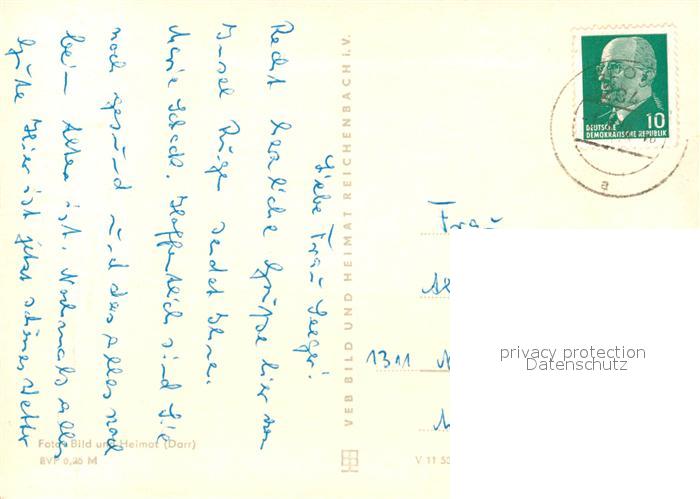 Liebe Frau Seeger!
Recht herzliche Grüße hier von
Insel Rügen sendet Ihnen
Marie Schack. Hoffentlich sind Sie
noch gesund und das alles noch
beim Alten ist. Nochmals alles
Gute Hier ist jetzt schönes Wetter
VEB BILD UND HEIMAT REICHENBACH i. V.
Foto: Bild und Heimat (Darr)
EVP 0,20 M
V 11 50
10
DEUTSCHE
DEMOKRATISCHE REPUBLIK
a
Frau
1311
privacy protection
Datenschutz